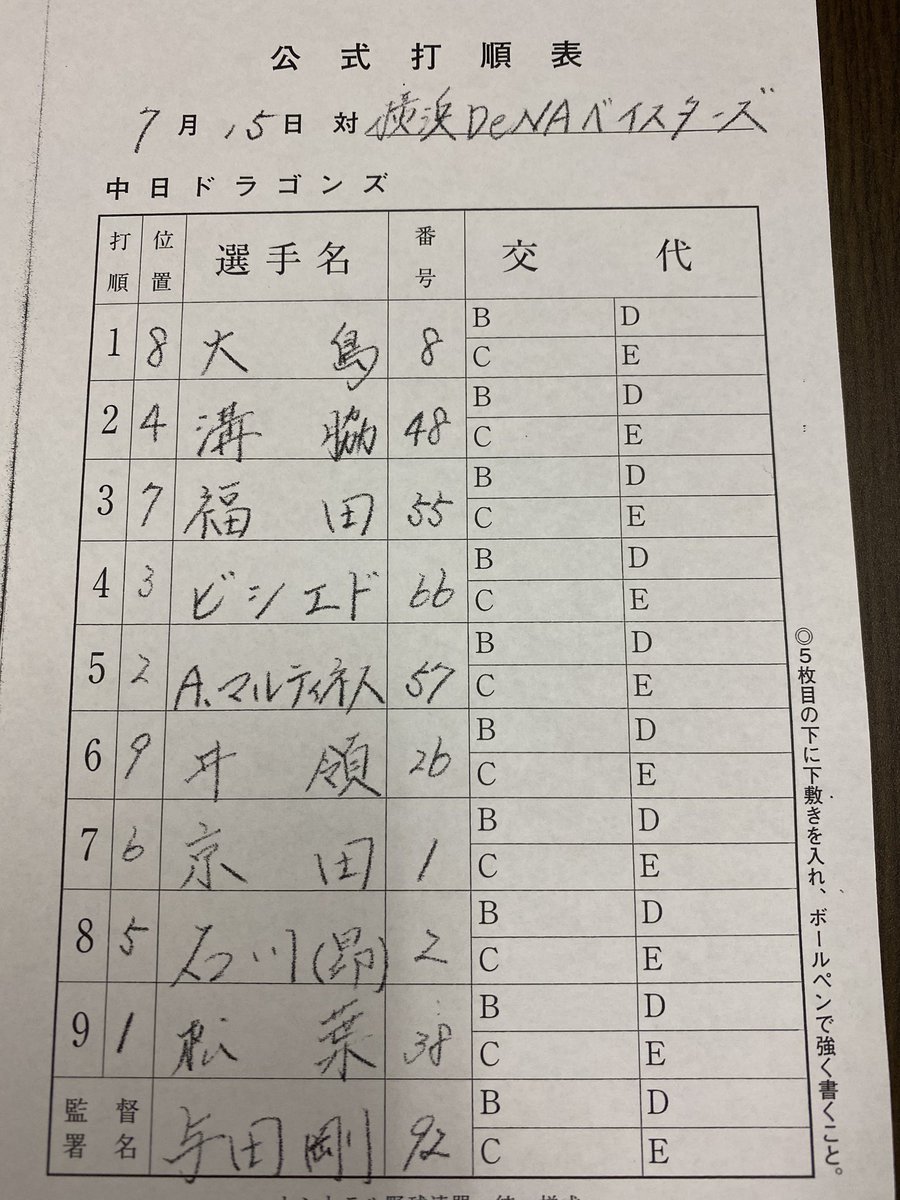 公式打順表
7月15日 対 横浜DeNAベイスターズ
中日ドラゴンズ
打順 位置 選手名 番号 交代
1 8 大島 8 B D C E
2 4 溝脇 48 B D C E
3 7 福田 55 B D C E
4 3 ビシエド 66 B D C E
5 2 A.マルティネス 57 B D C E
6 9 井領 26 B D C E
7 6 京田 1 B D C E
8 5 石川(昂) 2 B D C E
9 1 松葉 38 B D C E
監督署名 与田剛 92 B D C E
◎5枚目の下に下敷きを入れ、ボールペンで強く書くこと。